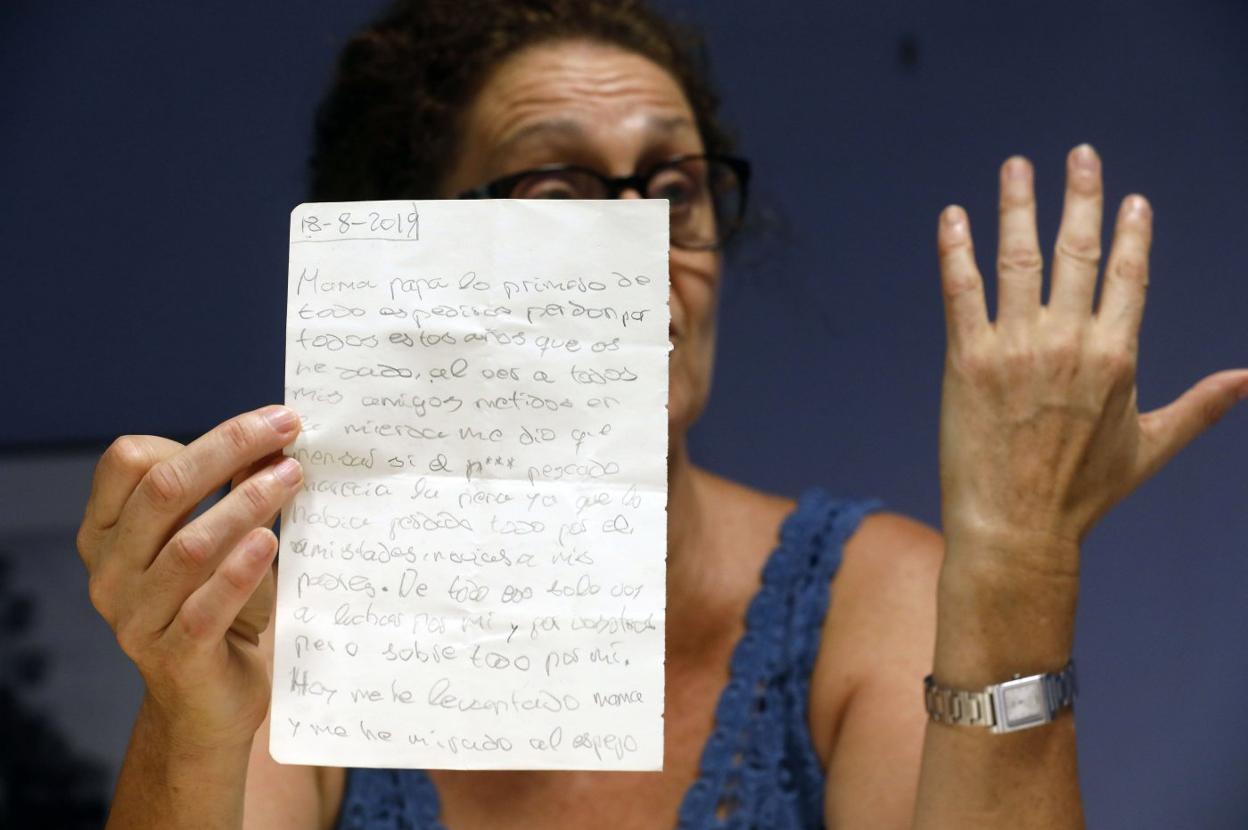 18-8-2019
Mama papa lo primero de
todo es pediros perdon por
todos estos años que os
he dado, al ver a todos
mis amigos metidos en
la mierda me dio que
pensar si el p*** pescado
merecia la pena ya que lo
habia perdido todo por el,
amistades, novias a mis
padres. De todo eso solo voy
a luchar por mi y por vosotros
pero sobre todo por mi.
Hoy me he levantado mama
y me he mirado al espejo